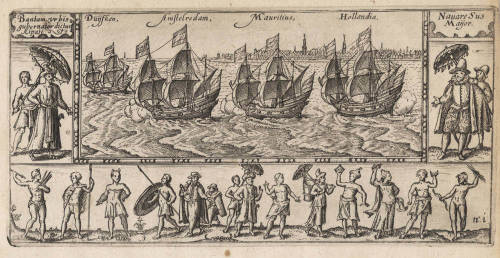 Bantam vrbis
gubernator dictus
Duijfken,
Amstelredam,
Mauritius,
Hollandia,
Nauare Sus
Maior.